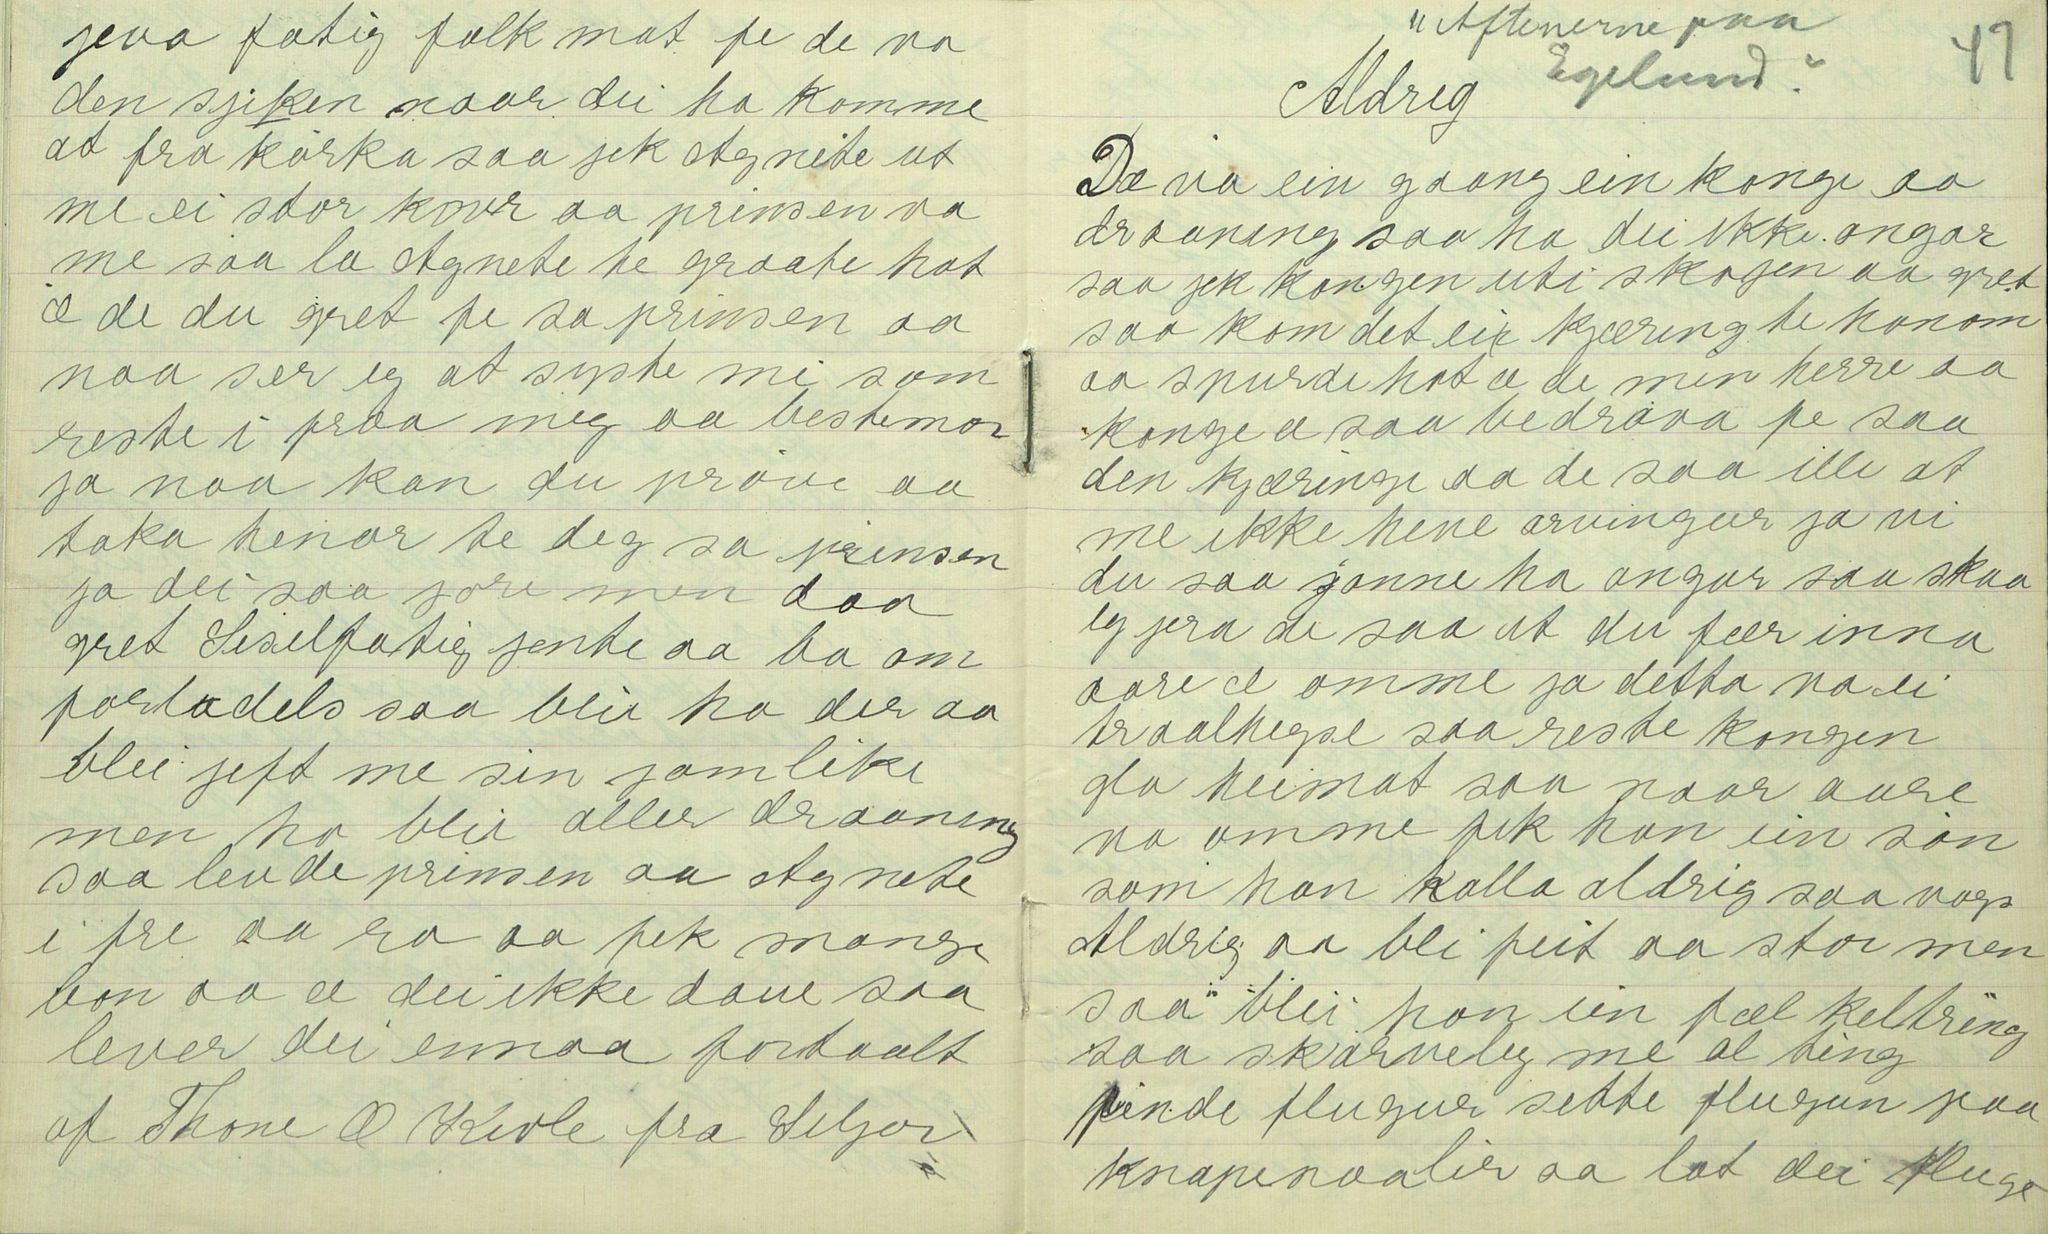 jeva fatig folk mat fe de va
den sjiken naar dei ha komme
at fra kórka saa jek Agnete ut
me ei stor korr aa prinsen va
me saa la Agnete te graate hot
æ de du gret fe sa prinsen aa
naa ser eg at syste mi som
reste i fraa meg aa bestemor
ja naa kan du próve aa
taka henar te deg sa prinsen
ja dei saa jore men daa
gret Sisilfatig jente aa ba om
forladels saa blei ho der aa
blei jeft me sin jamlike
men ho blei aller draaning
saa levde prinsen aa Agnete
i fre aa ro aa fek mange
bon aa æ dei ikke daue saa
lever dei ennaa fortaalt
af Thone O Kivle fra Seljor
"Aftenerne paa
Egelund".
49
Aldreg
Dæ va ein gaang ein konge aa
draaning saa ha dei ikke ongar
saa jek kongen uti skojen aa gret
saa kom det ein kjæring te honom
aa spurde hot æ de min herre aa
konge æ saa bedróva fe saa
den kjæringe aa de saa ille at
me ikke heve arvingur ja vi
du saa jonne ha ongar saa skaa
eg jera de saa at du fær inna
aare æ omme ja detta va ei
traalhegse saa reste kongen
gla heimat saa naar aare
va omme fek han ein són
som han kalla aldrig saa vogs
Aldrig aa bli feit aa stor men
saa blei han ein fæl keltring
saa skarveleg me al ting
finde flugur sette flugun paa
knapenaalir aa lot dei fluge